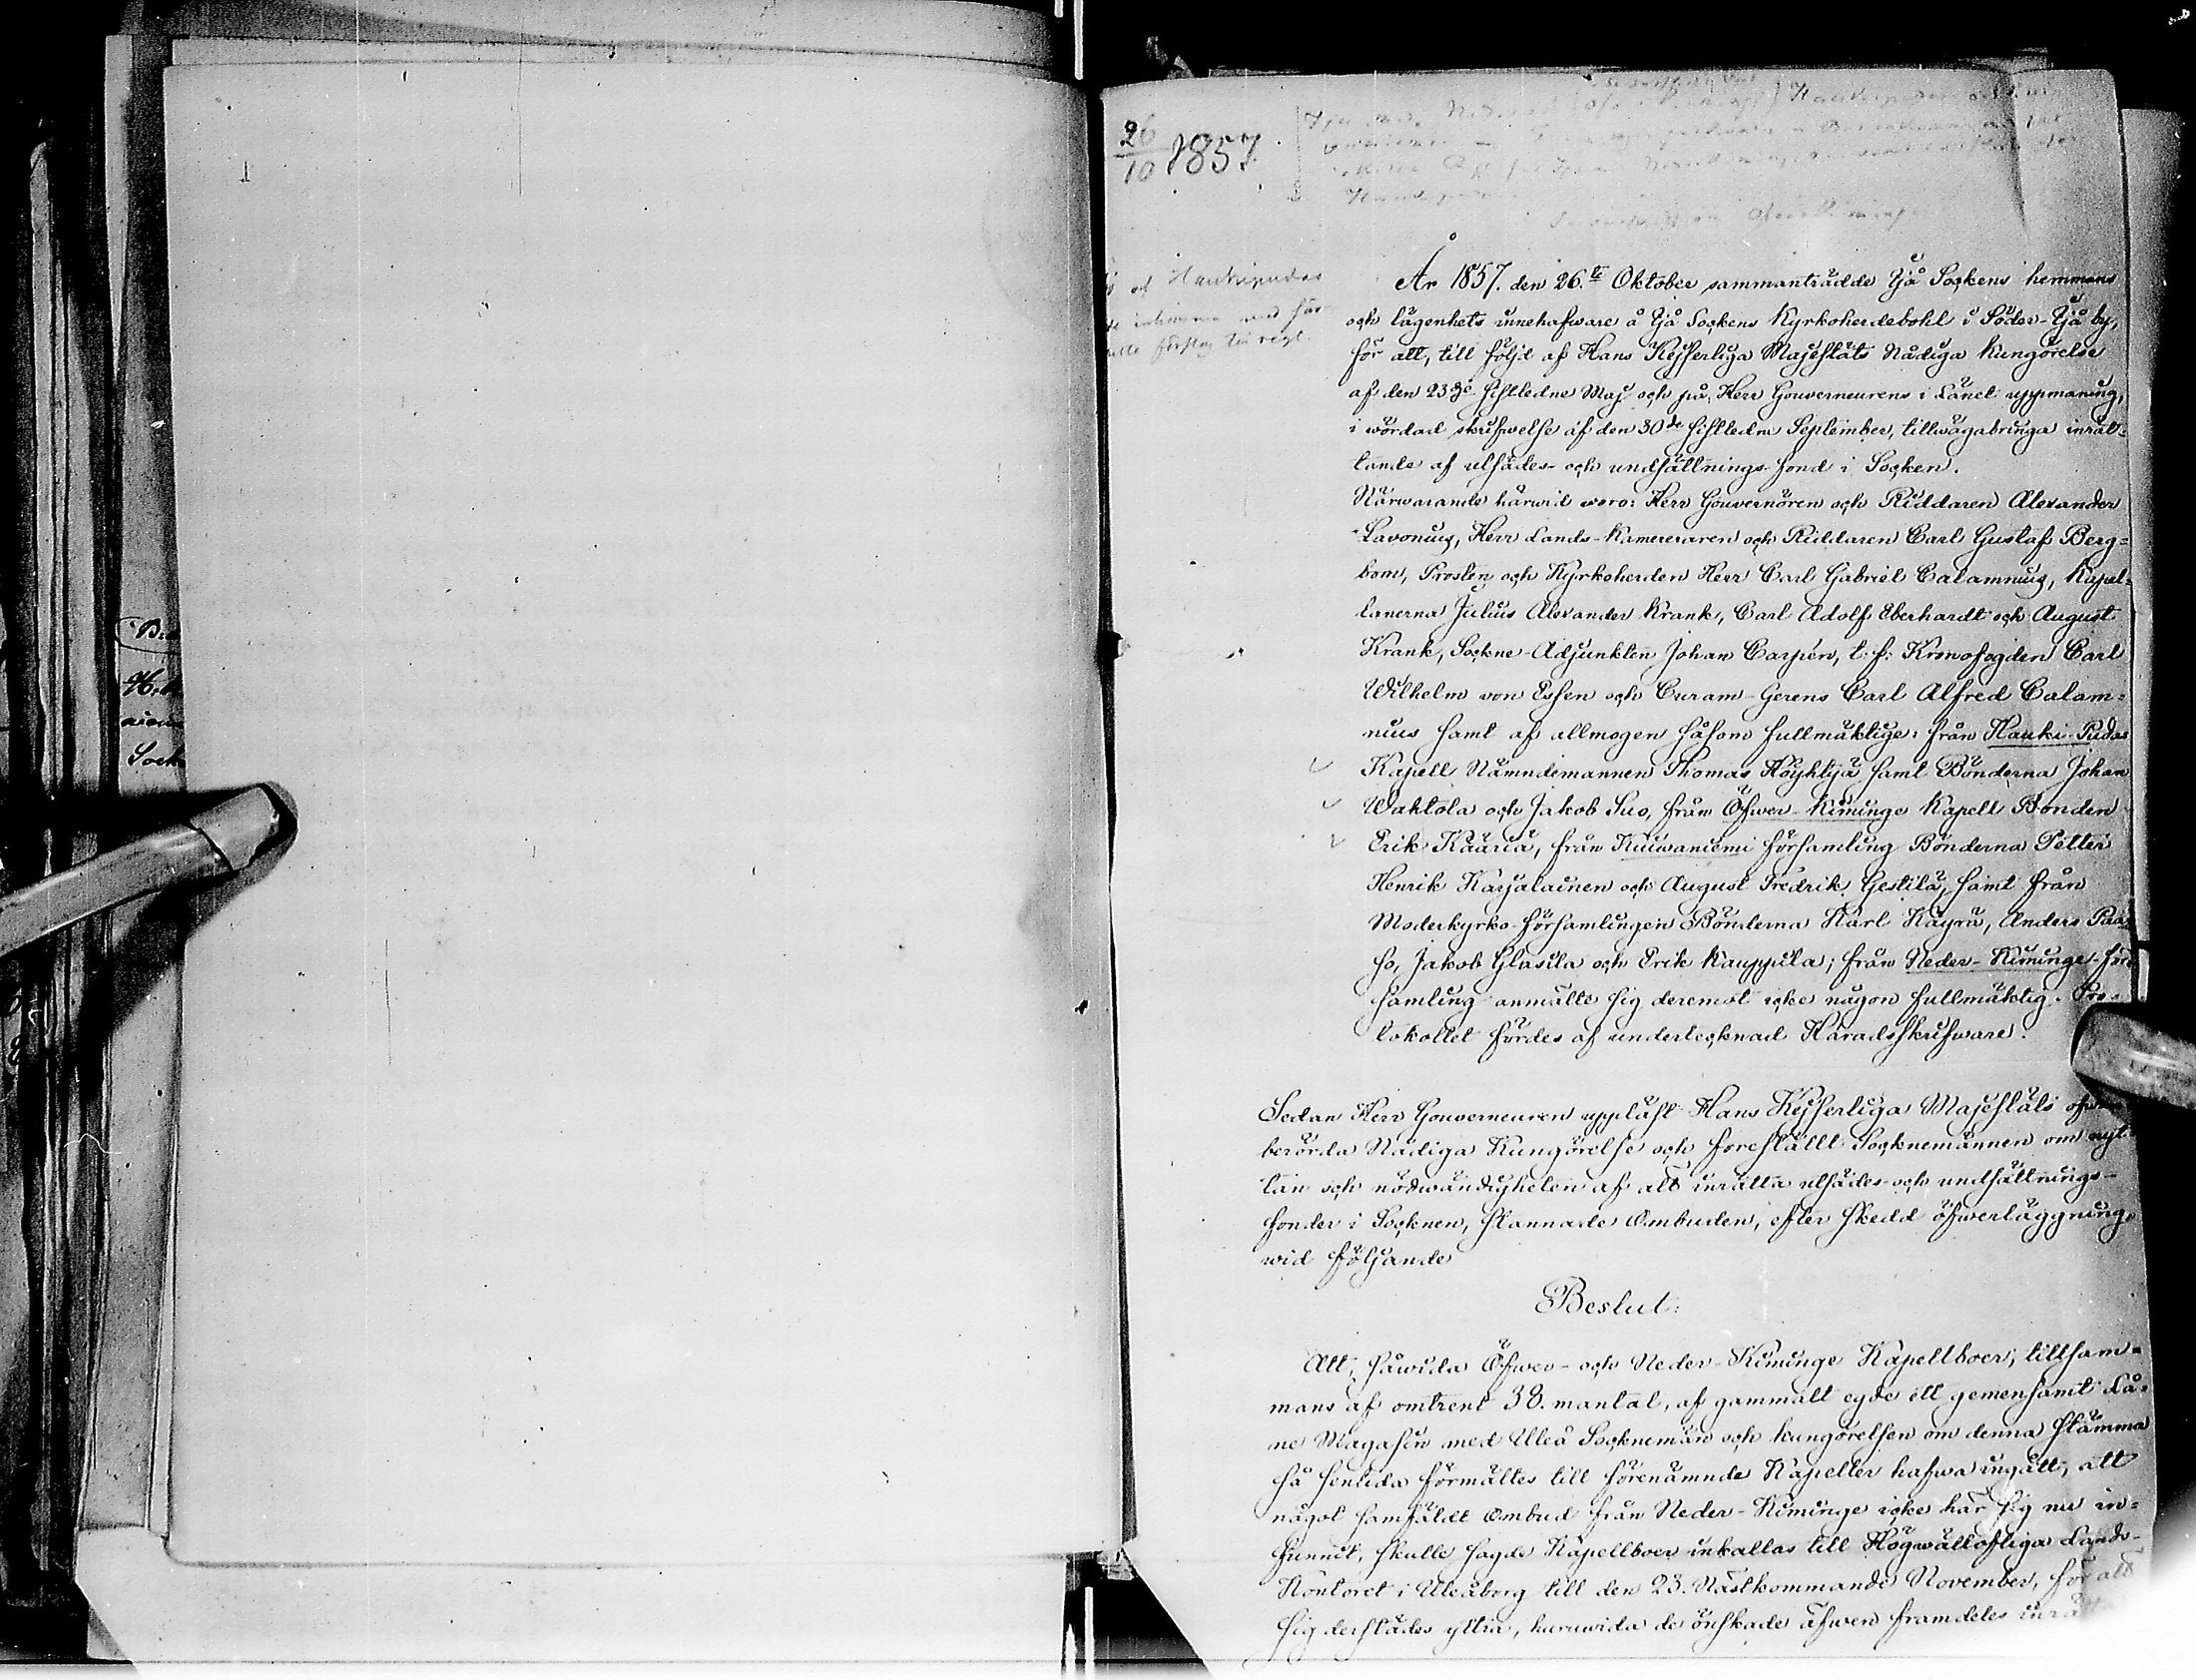 26
10 1857.
af Haukipudas
År 1857. den 26.te Oktober sammanträdde Ijo Sockens hemmans
och lägenhets innehafware å Ijo Sockens Kyrkoherdebohl i Söder-Ijo by,
för att, till följd af Hans Kejserliga Majestäts Nådiga Kungörelse
af den 23de sistledne Maj och på Herr Gouverneurens i Länet uppmaning,
i wördad skrifwelse af den 30de sistledne September, tillwägabringa inrät-
tande af utsädes- och undsättnings-fond i Socken.
Närwarande härwid woro: Herr Gouvernören och Riddaren Alexander
Lavonius, Herr Lands-Kamereraren och Riddaren Carl Gustaf Berg-
bom, Prosten och Kyrkoherden Herr Carl Gabriel Calamnius, Kapel-
lanerna Julius Alexander Krank, Carl Adolf Eberhardt och August
Krank, Sockne-Adjunkten Johan Carpén, t.f. Kronofogden Carl
Wilhelm von Essen och Curam-Gerens Carl Alfred Calam-
nius samt af allmogen såsom fullmäktige: från Hauki-Pudas
Kapell Nämndemannen Thomas Höyhtyä samt Bönderna Johan
Waktola och Jakob Suo, från Öfwer-Kiminge Kapell Bonden
Erik Kääriä, från Kuiwaniemi församling Bönderna Petter
Henrik Karjalainen och August Fredrik Gestilä, samt från
Moderkyrko-församlingen Bönderna Karl Käyrä, Anders Paa-
so, Jakob Glasila och Erik Kauppila; från Neder-Kiminge för-
samling anmälte sig deremot icke någon fullmäktig. Pro-
tokollet fördes af undertecknad Häradsskrifware.
Sedan Herr Gouverneuren uppläst Hans Kejserliga Majestäts ofwan-
berörda Nådiga Kungörelse och föreställt Socknemännen om nyt-
tan och nödwändigheten af att inrätta utsädes- och undsättnings-
fonder i Socknen, stannade Ombuden, efter skedd öfwerläggning,
wid följande
Beslut:
Att, såwida Öfwer- och Neder-Kiminge Kapellboer, tillsam-
mans af omtrent 38. mantal, af gammalt egde ett gemensamt Lå-
ne Magasin med Uleå Socknemän och kungörelsen om denna stämma
så sentida förmältes till förenämnde Kapeller hafwa ingått, att
något samfäldt Ombud från Neder-Kiminge icke har sig nu in-
funnit, skulle sagde Kapellboer inkallas till Högwällofliga Lands-
Kontoret i Uleåborg till den 23. Nästkommande November, för att
sig derstädes yttra, huruwida de önskade äfwen framdeles